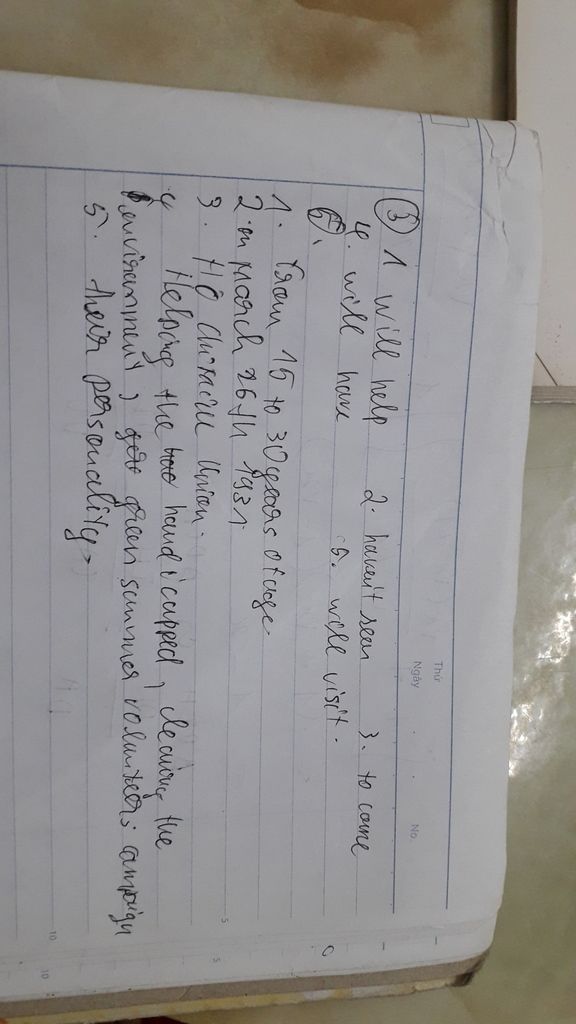 Thứ
Ngày
No.
③ 1 will help 2. haven't seen 3. to come
4. will have 5. will visit.
⑥.
1. From 15 to 30 years of age
2. on March 26th 1931
3. Hồ Union.
4 Helping the handicapped, cleaning the
environment, green summer volunteers campaign
5. their personality.
5
5
10
10